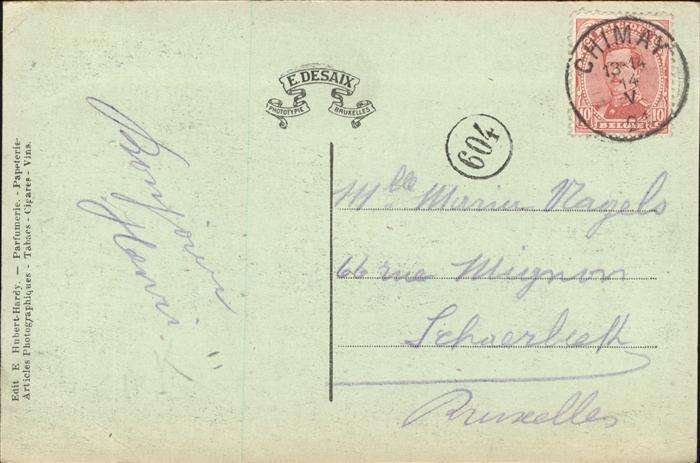 Edit E. Hubert-Hardy. — Parfumerie. - Papeterie-
Articles Photographiques - Tabacs - Cigares - Vins.
Bonjour
Henri
E. DESAIX
PHOTOTYPIE BRUXELLES
604
CHIMAY
13-14
14
V
10 10
BELGIË
Mlle Maria Nagels
66 rue Mignon
Schaerbeek
Bruxelles